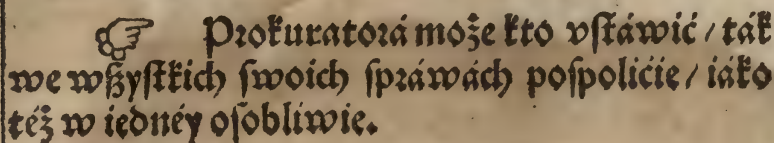 ☞ Prokuratorá może kto vſtáwić / ták
we wßyſtkich ſwoich ſpráwách poſpolićie / iáko
też w iednéy oſobliwie.